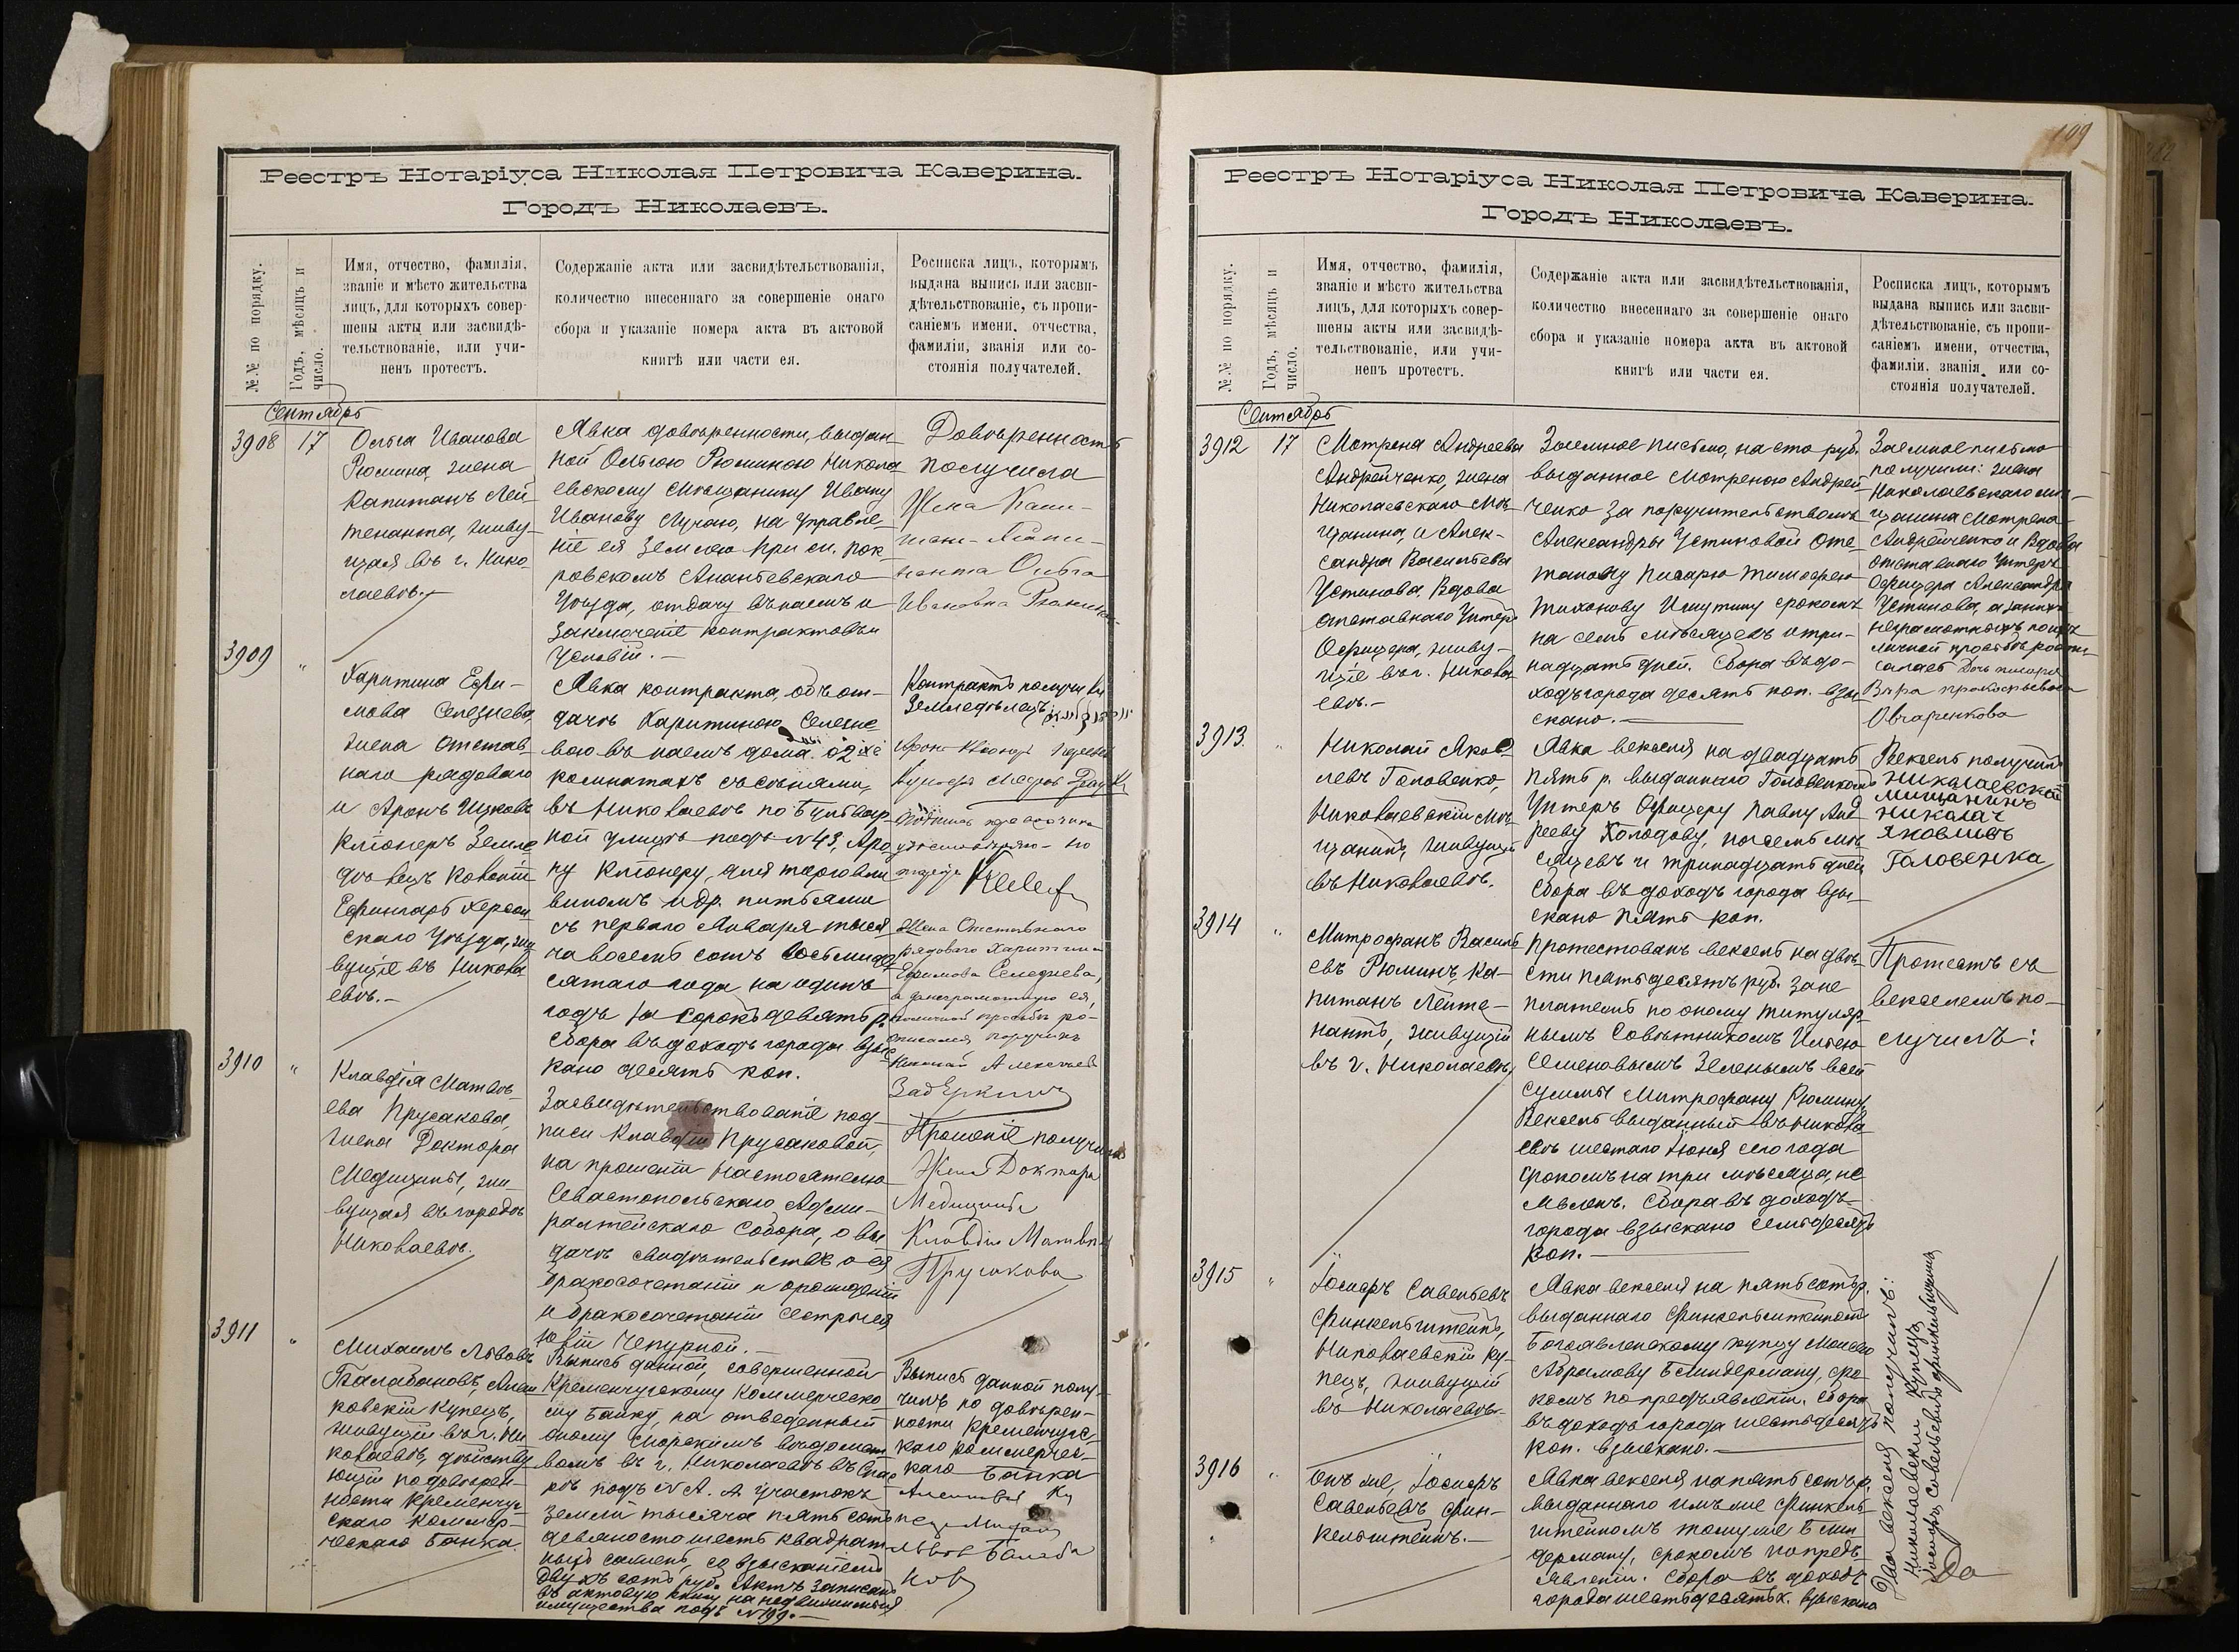 Реестръ Нотаріуса Николая Петровича Каверина.
Городъ Николаевъ.
№№ по порядку.
Годъ, мѣсяцъ и
число.
Имя, отчество, фамилія,
званіе и мѣсто жительства
лицъ, для которыхъ совер-
шены акты или засвидѣ-
тельствованіе, или учи-
ненъ протестъ.
Содержаніе акта или засвидѣтельствованія,
количество внесеннаго за совершеніе онаго
сбора и указаніе номера акта въ актовой
книгѣ или части ея.
Росписка лицъ, которымъ
выдана выпись или засви-
дѣтельствованіе, съ пропи-
саніемъ имени, отчества,
фамиліи, званія или со-
стоянія получателей.
Сентябрь
3908
17
Ольга Иванова
Рюмина, жена
Капитанъ Лей-
тенанта, живу-
щая въ г. Нико-
лаевѣ.
Явка довѣренности, выдан-
ной Ольгою Рюминою Никола-
евскому Мѣщанину Ивану
Иванову Лучаю, на управле-
ніе ея землею при си. Пок-
ровскомъ Ананьевскаго
Уѣзда, отдачу въ наемъ и
заключеніе контрактовъ и
Условій.
Довѣренность
получила
Жена Капи-
танъ-Лейте-
нанта Ольга
Ивановна Рюмина
3909
"
Харитина Ефи-
мова Селезнева,
жена Отстав-
наго рядоваго
и Аронъ Ицковъ
Кліонеръ Земле-
дѣлецъ Колоніи
Ефингаръ Херсон-
скаго Уѣзда, жи-
вущіе въ Никола-
евѣ.
Явка контракта, объ от-
дачѣ Харитиною Селезне-
вою въ наемъ дома о 2хъ
комнатахъ съ сѣнями,
въ Николаевѣ по Бульвар-
ной улицѣ подъ № 43, Аро-
ну Кліонеру, для торговли
виномъ и др. питьями
съ перваго Января тыся-
ча восемь сотъ восьмиде-
сятаго года на одинъ
годъ за сорокъ девять р.
Сбора въ доходъ города взыс-
кано десять коп.
Контрактъ получили
Земледѣлецъ
Жена Отставного
рядоваго Харитина
Ефимова Селезнева,
а за неграмотную ея,
по личной просьбѣ ро-
списался поручикъ
3910
"
Клавдія Матвѣ-
ева Прусакова,
жена Доктора
Медицины, жи-
вущая въ городѣ
Николаевѣ.
Засвидѣтельствованіе под-
писи Клавдіи Прусаковой,
на прошеніи Настоятелю
Севастопольскаго Адми-
ралтейскаго Собора, о вы-
дачѣ свидѣтельствъ о ея
бракосочетаніи и о рожденіи
и бракосочетаніи сестры ея
Юліи Чепурной.
Прошеніе получила
Жена Доктора
Медицины
Клавдія Матвѣева
Прусакова
3911
"
Михаилъ Львовъ
Балабановъ, Алеш-
ковскій Купецъ,
живущій въ г. Ни-
колаевѣ, дѣйству-
ющій по довѣрен-
ности Кременчуг-
скаго Коммер-
ческаго Банка.
Выпись данной, совершенной
Кременчугскому Коммерческо-
му Банку, на отведенный
оному Морскимъ вѣдомст-
вомъ въ г. Николаевѣ въ Спас-
кѣ подъ № А. А участокъ
земли тысяча пять сотъ
девяносто шесть квадрат-
ныхъ саженъ, со взысканіемъ
двухъ сотъ руб. Актъ записанъ
въ актовую книгу на недвижимыя
имущества подъ № 199.
Выпись данной полу-
чилъ по довѣрен-
ности Кременчугс-
каго Коммерчес-
каго Банка
Алешковскій Ку-
пецъ Михаилъ
Львовъ Балаба-
новъ
109
Реестръ Нотаріуса Николая Петровича Каверина.
Городъ Николаевъ.
№№ по порядку.
Годъ, мѣсяцъ и
число.
Имя, отчество, фамилія,
званіе и мѣсто жительства
лицъ, для которыхъ совер-
шены акты или засвидѣ-
тельствованіе, или учи-
ненъ протестъ.
Содержаніе акта или засвидѣтельствованія,
количество внесеннаго за совершеніе онаго
сбора и указаніе номера акта въ актовой
книгѣ или части ея.
Росписка лицъ, которымъ
выдана выпись или засви-
дѣтельствованіе, съ пропи-
саніемъ имени, отчества,
фамиліи, званія, или со-
стоянія получателей.
Сентябрь
3912
17
Мотрена Андреева
Андрейченко, жена
Николаевскаго Мѣ-
щанина, и Алек-
сандра Васильева
Устинова, Вдова
отставнаго Унтеръ
Офицера, живу-
щіе въ г. Никола-
евѣ.
Заемное письмо, на сто руб.
выданное Мотреною Андрей-
ченко за поручительствомъ
Александры Устиновой Отс-
тавному Писарю Тимофею
Тихонову Ишутину срокомъ
на семь мѣсяцевъ и три-
надцать дней. Сбора въ до-
ходъ города десять коп. взы-
скано.
Заемное письмо
получили: жена
Николаевскаго мѣ-
щанина Мотрена
Андрейченко и Вдова
отставнаго Унтеръ
Офицера Александра
Устинова, а за нихъ
неграмотныхъ по ихъ
личной просьбѣ роспи-
салась дочь писаря
Вѣра Прокофьевна
Овчаренкова
3913
"
Николай Яков-
левъ Головенко,
Николаевскій Мѣ-
щанинъ, живущій
въ Николаевѣ.
Явка векселя на двадцать
пять р. выданнаго Головенкомъ
Унтеръ Офицеру Павлу Анд-
рееву Холодову, на семь мѣ-
сяцевъ и тринадцать дней
Сбора въ доходъ города взы-
скано пять коп.
Вексель получилъ
николаевской
мищанинъ
николай
яковливъ
Головенка
3914
"
Митрофанъ Василь-
евъ Рюминъ, Ка-
питанъ Лейте-
нантъ, живущій
въ г. Николаевѣ,
Протестованъ вексель на двѣ-
сти пятьдесятъ руб. за не
платежъ по оному Титуляр-
нымъ Совѣтникомъ Ильею
Семеновымъ Зеленымъ всей
суммы Митрофану Рюмину,
Вексель выданный въ Никола-
евѣ шестаго Іюня сего года
срокомъ на три мѣсяца, не
явленъ. Сбора въ доходъ
города взыскано семьдесятъ
коп.
Протестъ съ
векселемъ по-
лучилъ:
3915
"
Іосифъ Савельевъ
Финкельштейнъ,
Николаевскій ку-
пецъ, живущій
въ Николаевѣ.
Явка векселя на пятьсотъ р.
выданнаго Финкельштейномъ
Богоявленскому купцу Моисею
Абрамову Блиндерману, сро-
комъ по предъявленіи. Сбора
въ доходъ города шестьдесятъ
коп. взыскано.
3916
"
Онъ же, Іосифъ
Савельевъ Фин-
кельштейнъ.
Явка векселя на пять сотъ р.
выданнаго имъ же Финкель-
штейномъ тому же Блин-
дерману, срокомъ по предъ-
явленіи. Сбора въ доходъ
города шестьдесятъ к. взыскано
Два векселя получилъ:
Николаевскій Купецъ
Іосифъ Савельевичъ Финкельштейнъ